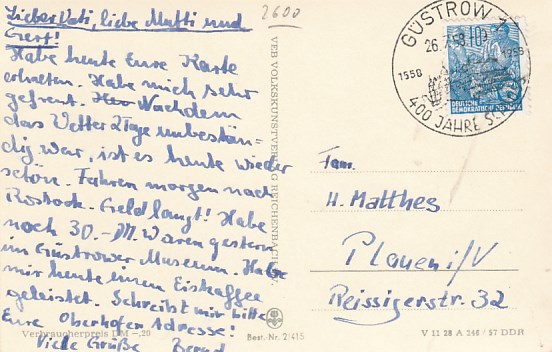 Lieber Vati, liebe Mutti und
Gert!
Habe heute Eure Karte
erhalten. Habe mich sehr
gefreut. Nachdem
das Wetter 2 Tage unbestän-
dig war, ist es heute wieder
schön. Fahren morgen nach
Rostock. Geld langt! Habe
noch 30.-M. Waren gestern
im Güstrower Museum. Habe
mir heute einen Eiskaffee
geleistet. Schreibt mir bitte
Eure Oberhofer Adresse!
Viele Grüße Bernd
Verbraucherpreis DM -,20
2600
VEB VOLKSKUNSTVERLAG REICHENBACH
Best.-Nr. 2/415
GÜSTROW
26.
58
1558
1958
400 JAHRE
10
DEUTSCHE
DEMOKRATISCHE REPUBLIK
Fam.
H. Matthes
Plauen i/V
Reissigerstr. 32
V 11 28 A 246 / 57 DDR